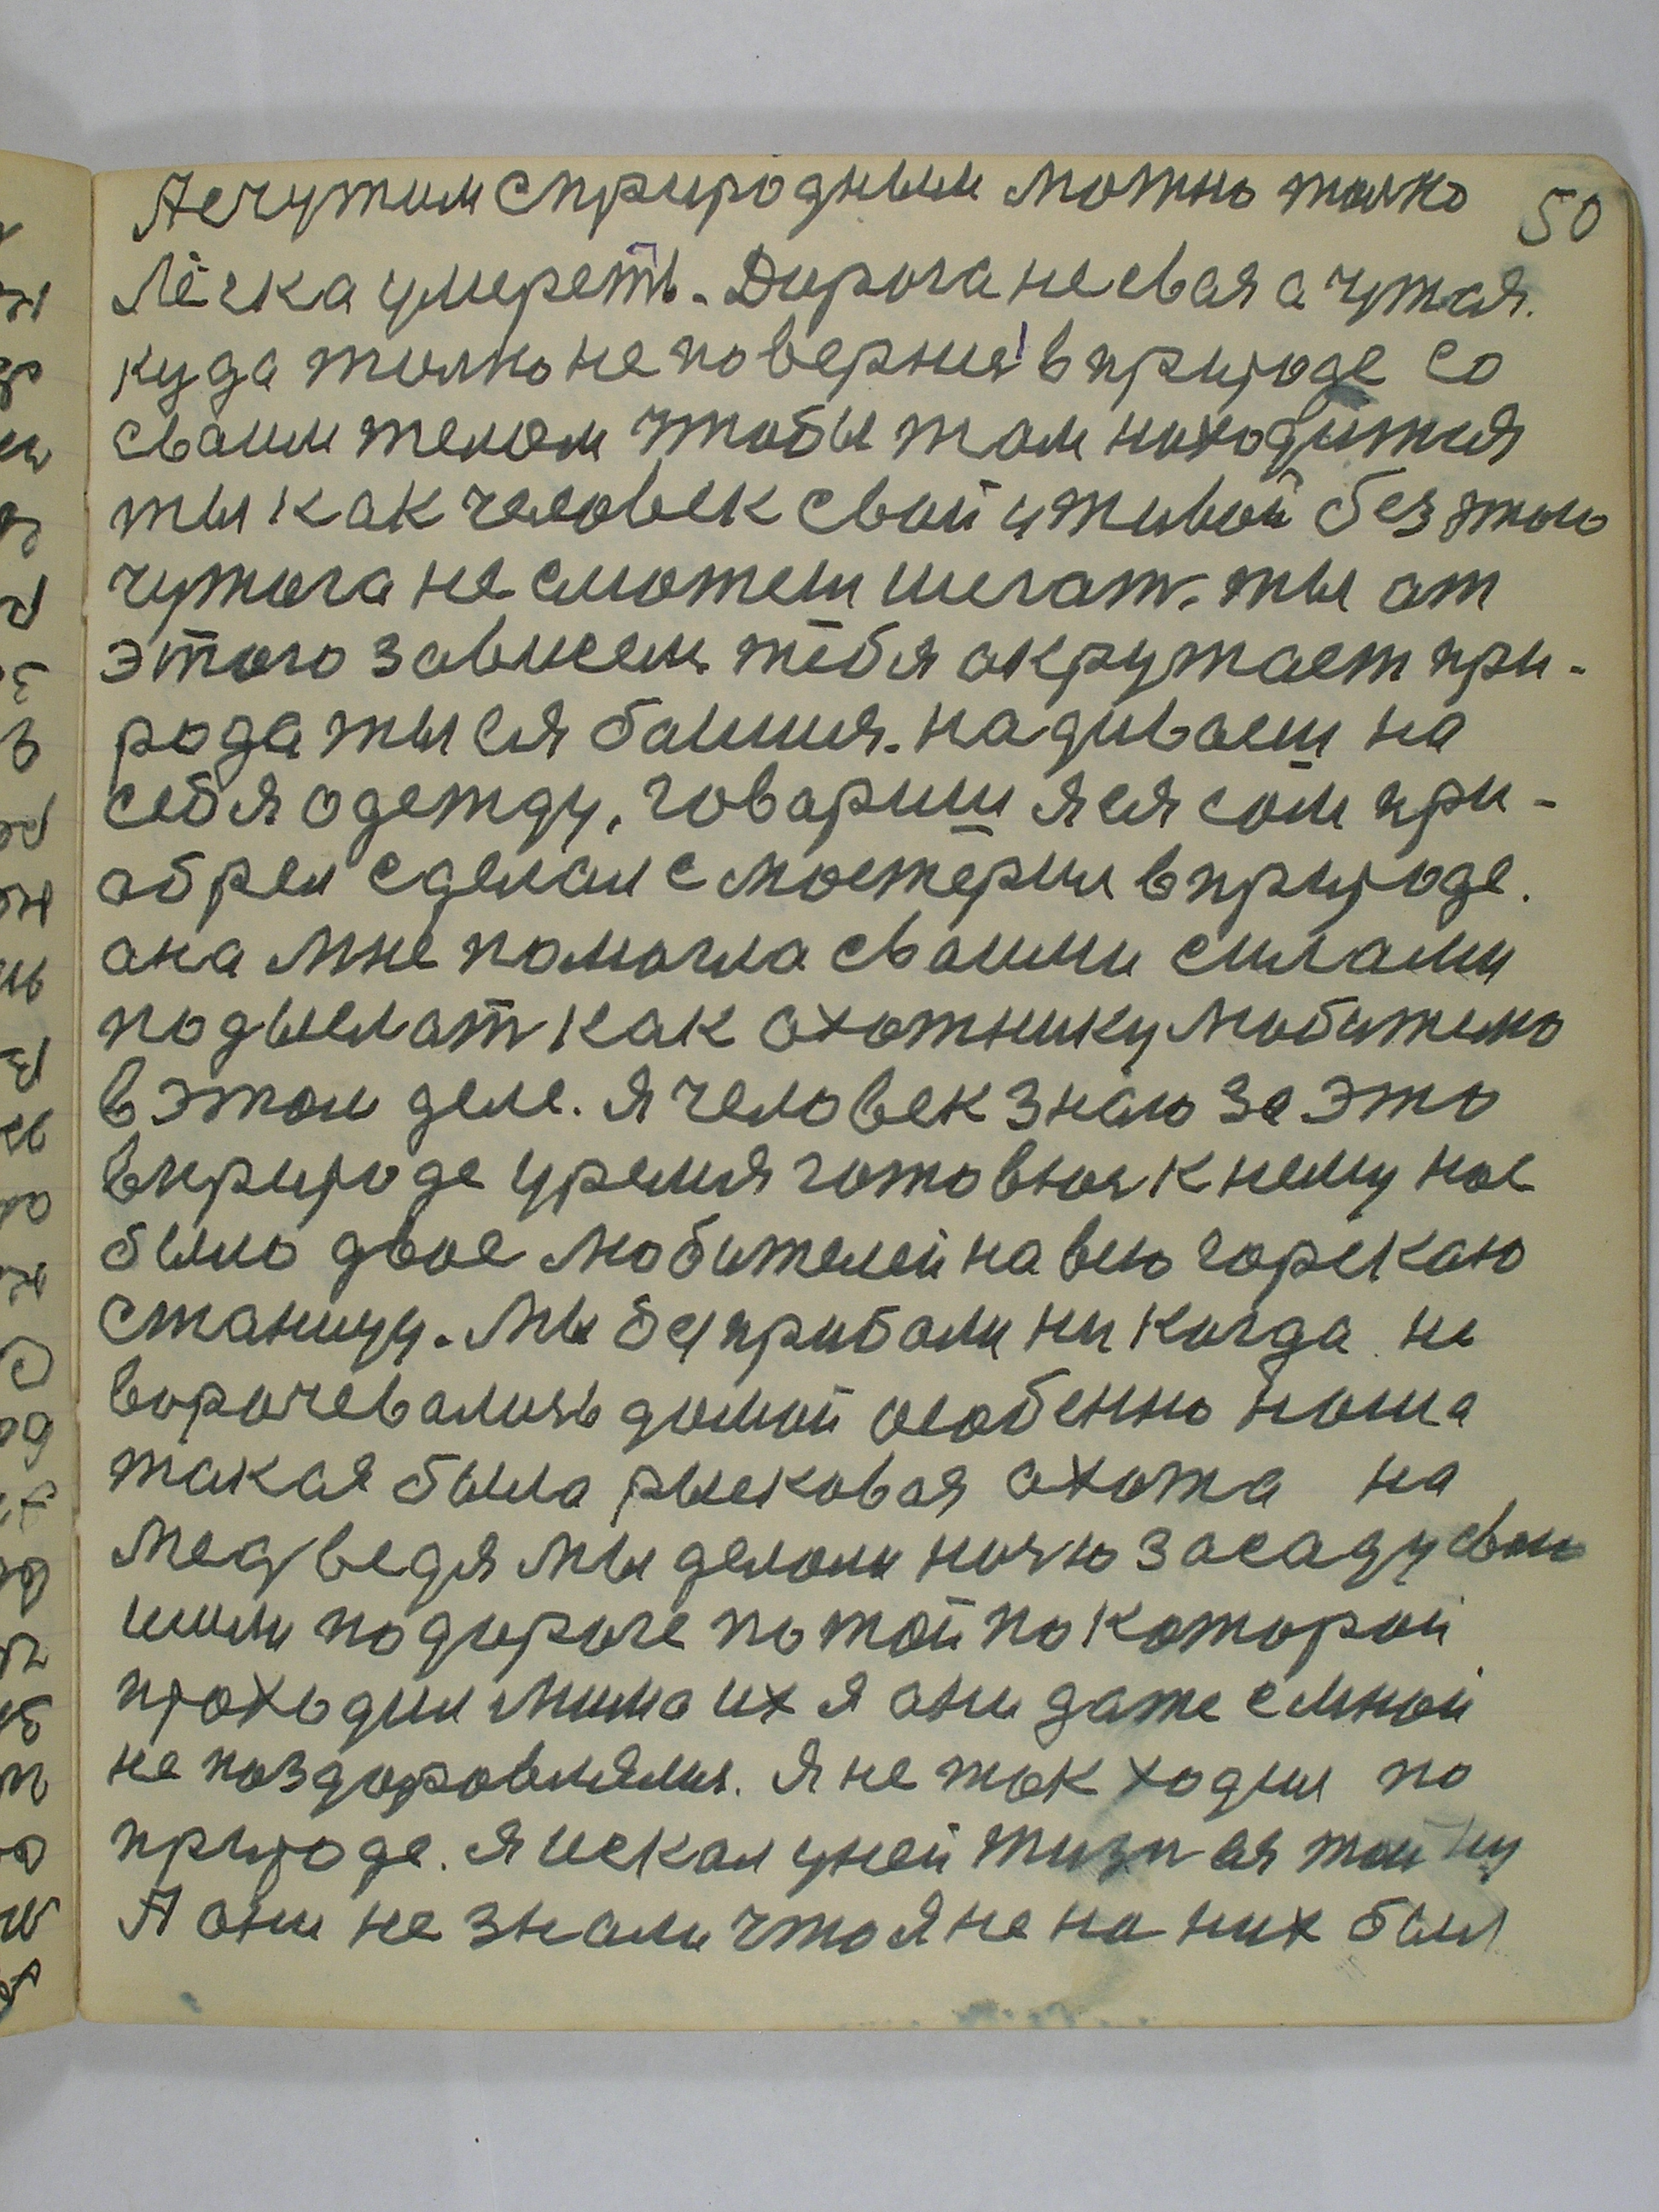 А счужим сприродным можно толко 50
Лёгка умереть. Дорога не свая а чужая.
куда толко не повернися в природе со
сваим телом чтобы там находится
ты как человек свой и живой без этого
чужога не сможеш шегат. ты от
этого зависем. тебя акружает при-
рода ты ея баишия. надиваеш на
себя одежду, говариш я ея сам при-
абрел сделал с мостерил в природе.
ана мне помогла сваими силами
подыслат как охотнику любителю
в этом деле. я человек знаю за это
вприроде уремя готовлюся к нему нас
было двое любителей на всю горскаю
станицу. Мы без прибали никогда не
ворочевалися домой особенно наша
такая была рысковая охота на
медведя мы делали ночю засаду сваи
шили по дороге по той по которой
проходил мимо их я они даже смной
не поздоровлялися. Я не так ходил по
природе. я искал у ней жизн ея тайну
А они не знали что я не на них был